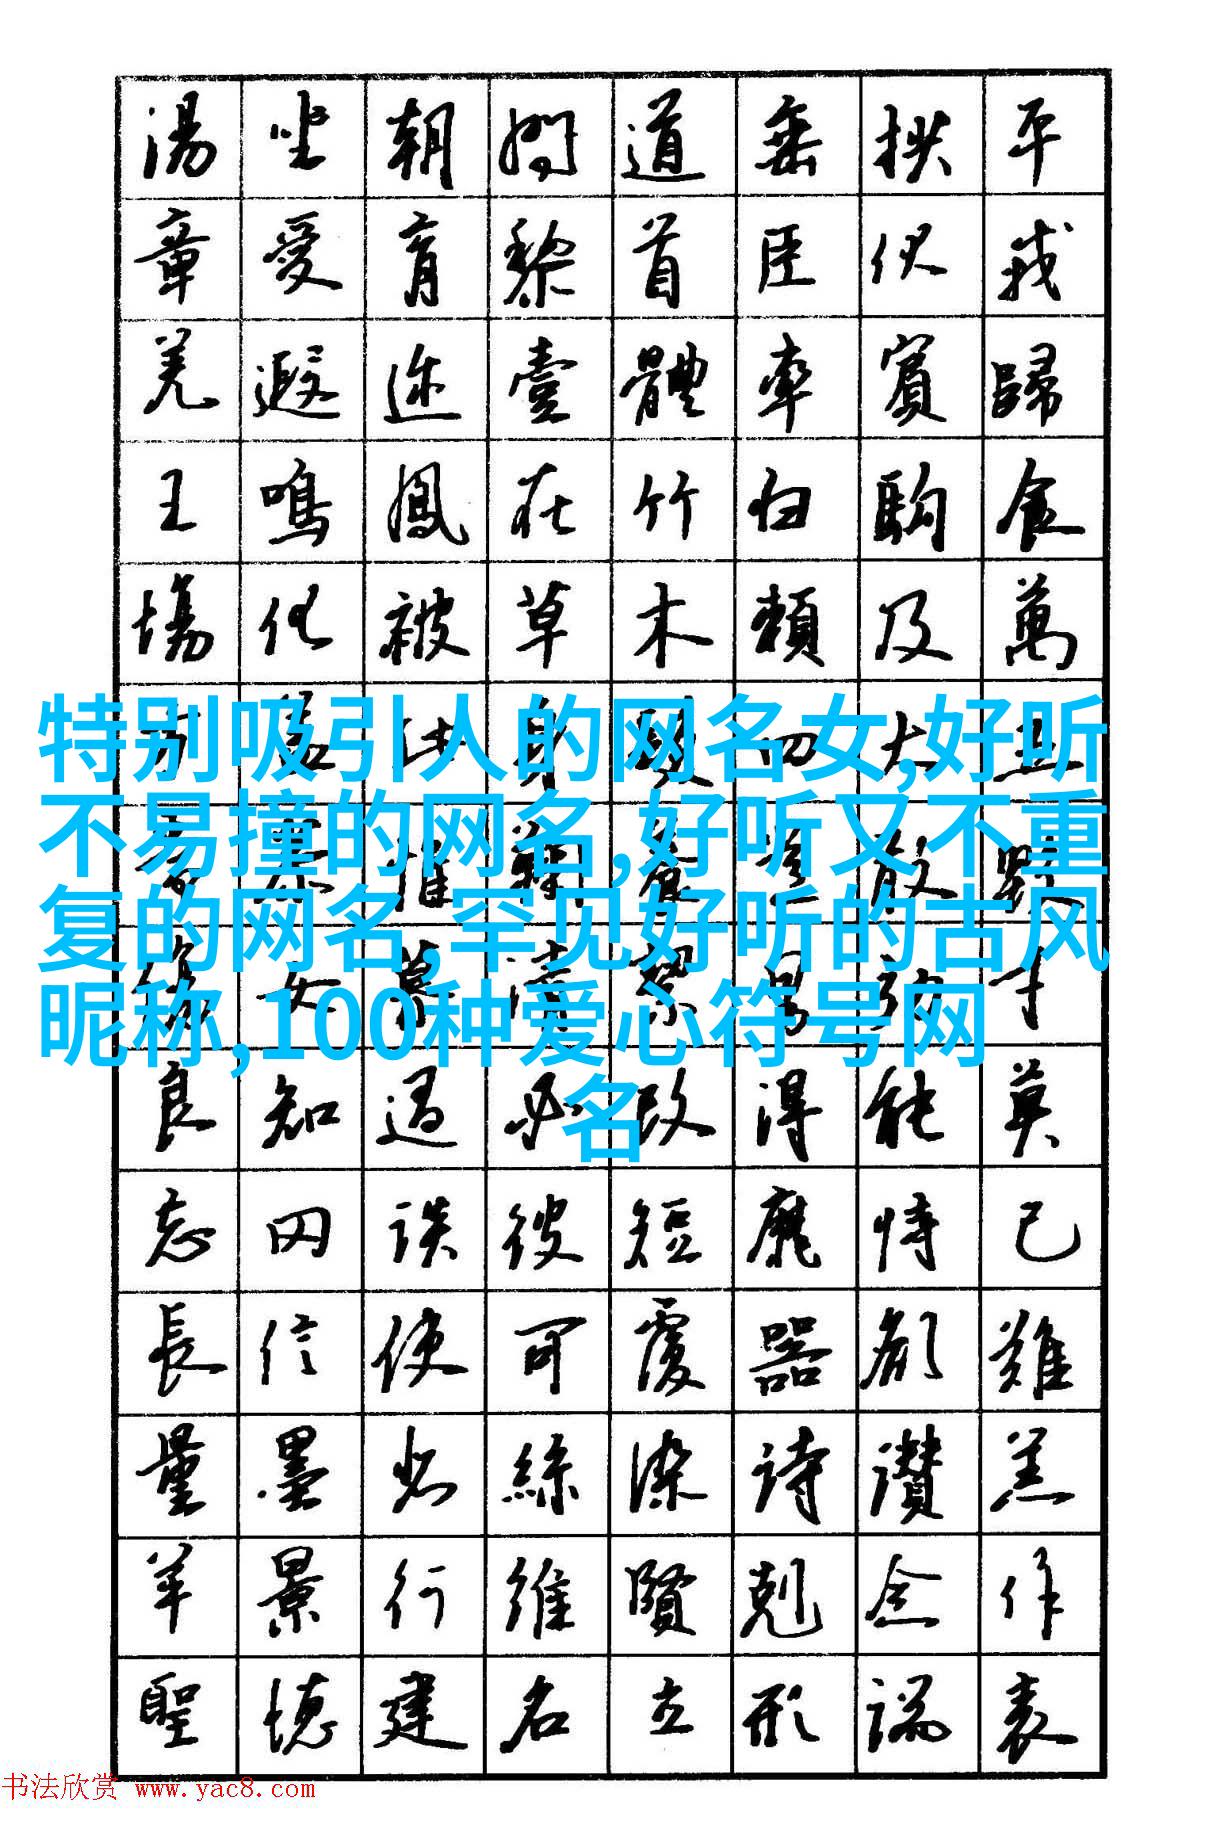 湯坐朝問道垂拱平
章愛育黎首臣伏戎
羌遐迩壹體率賓歸
王鳴鳳在竹白駒食
場化被草木賴及萬
特别吸引人的网名女,好听
不易撞的网名,好听又不重
复的网名,罕见好听的古风
昵称,100种爱心符号网
名
良知過必改得能莫
忘罔談彼短靡恃己
長信使可覆器欲難
量墨悲絲染詩讃羔
羊景行維賢剋念作
聖德建名立形端表
书法欣赏 www.yac8.com